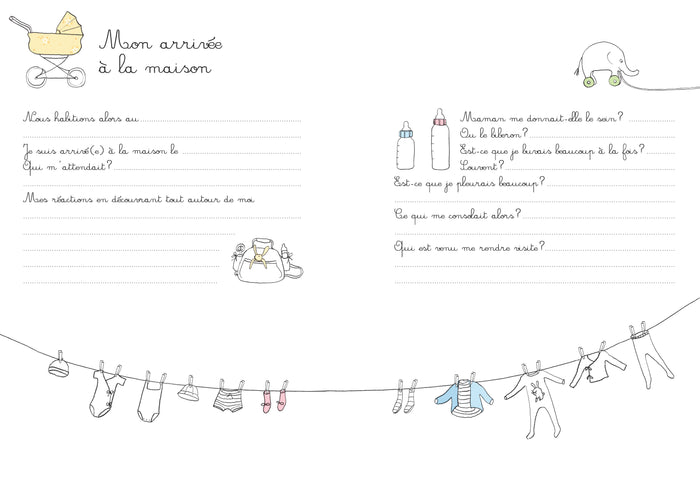 Mon arrivée
à la maison
Nous habitions alors au
Je suis arrivé(e) à la maison le
Qui m'attendait?
Mes réactions en découvrant tout autour de moi
Maman me donnait-elle le sein?
Ou le biberon?
Est-ce que je buvais beaucoup à la fois?
Souvent?
Est-ce que je pleurais beaucoup?
Ce qui me consolait alors?
Qui est venu me rendre visite?